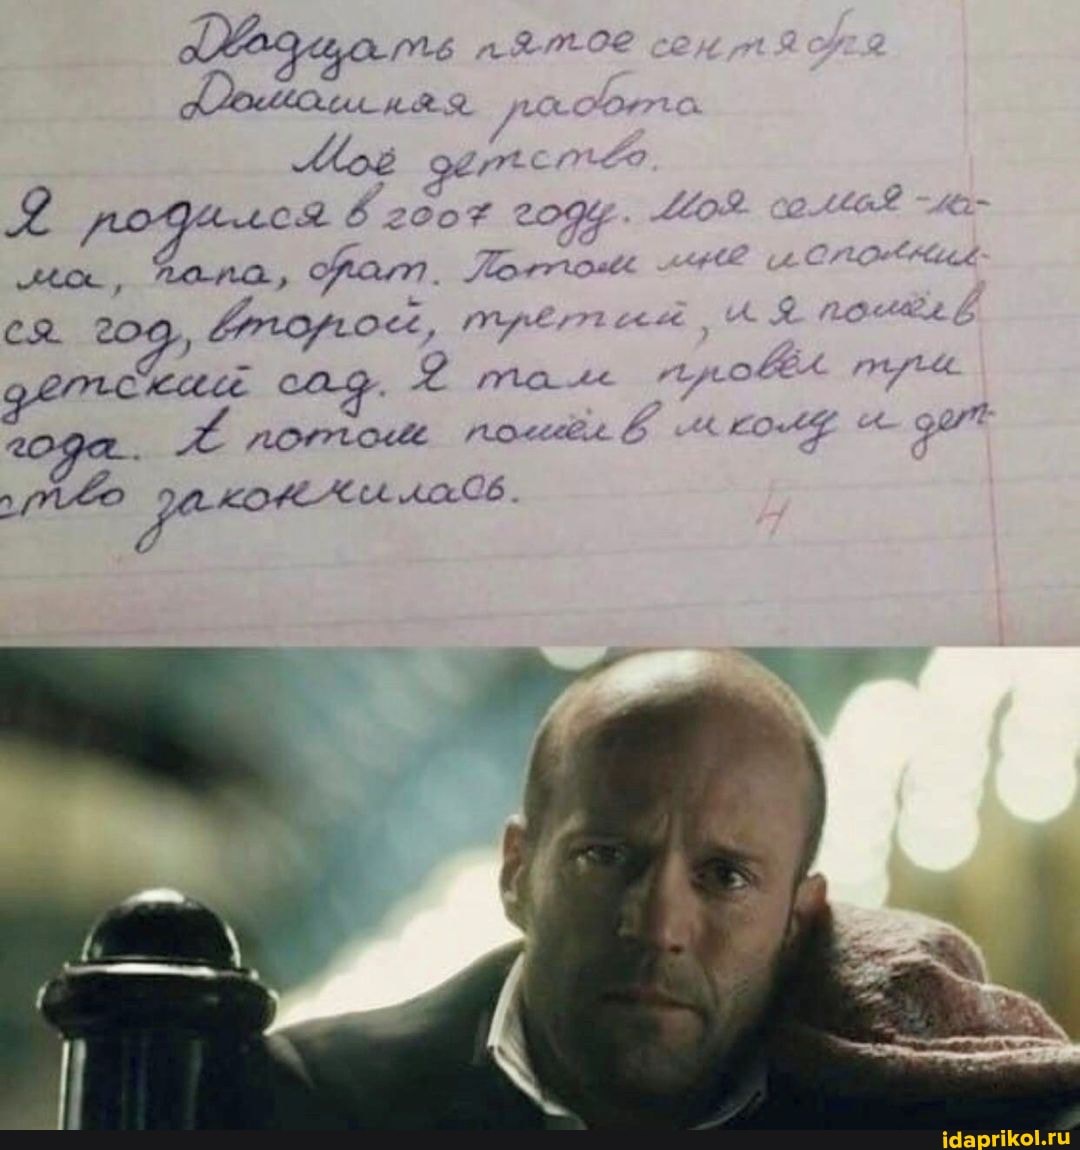 Двадцать пятое сентября
Домашняя работа
Моё детство.
Я родился в 2007 году. Моя семья - ма-
ма, папа, брат. Потом мне исполнил-
ся год, второй, третий, и я пошёл в
детский сад. Я там провёл три
года. А потом пошёл в школу и дет-
ство закончилась.
4
idaprikol.ru